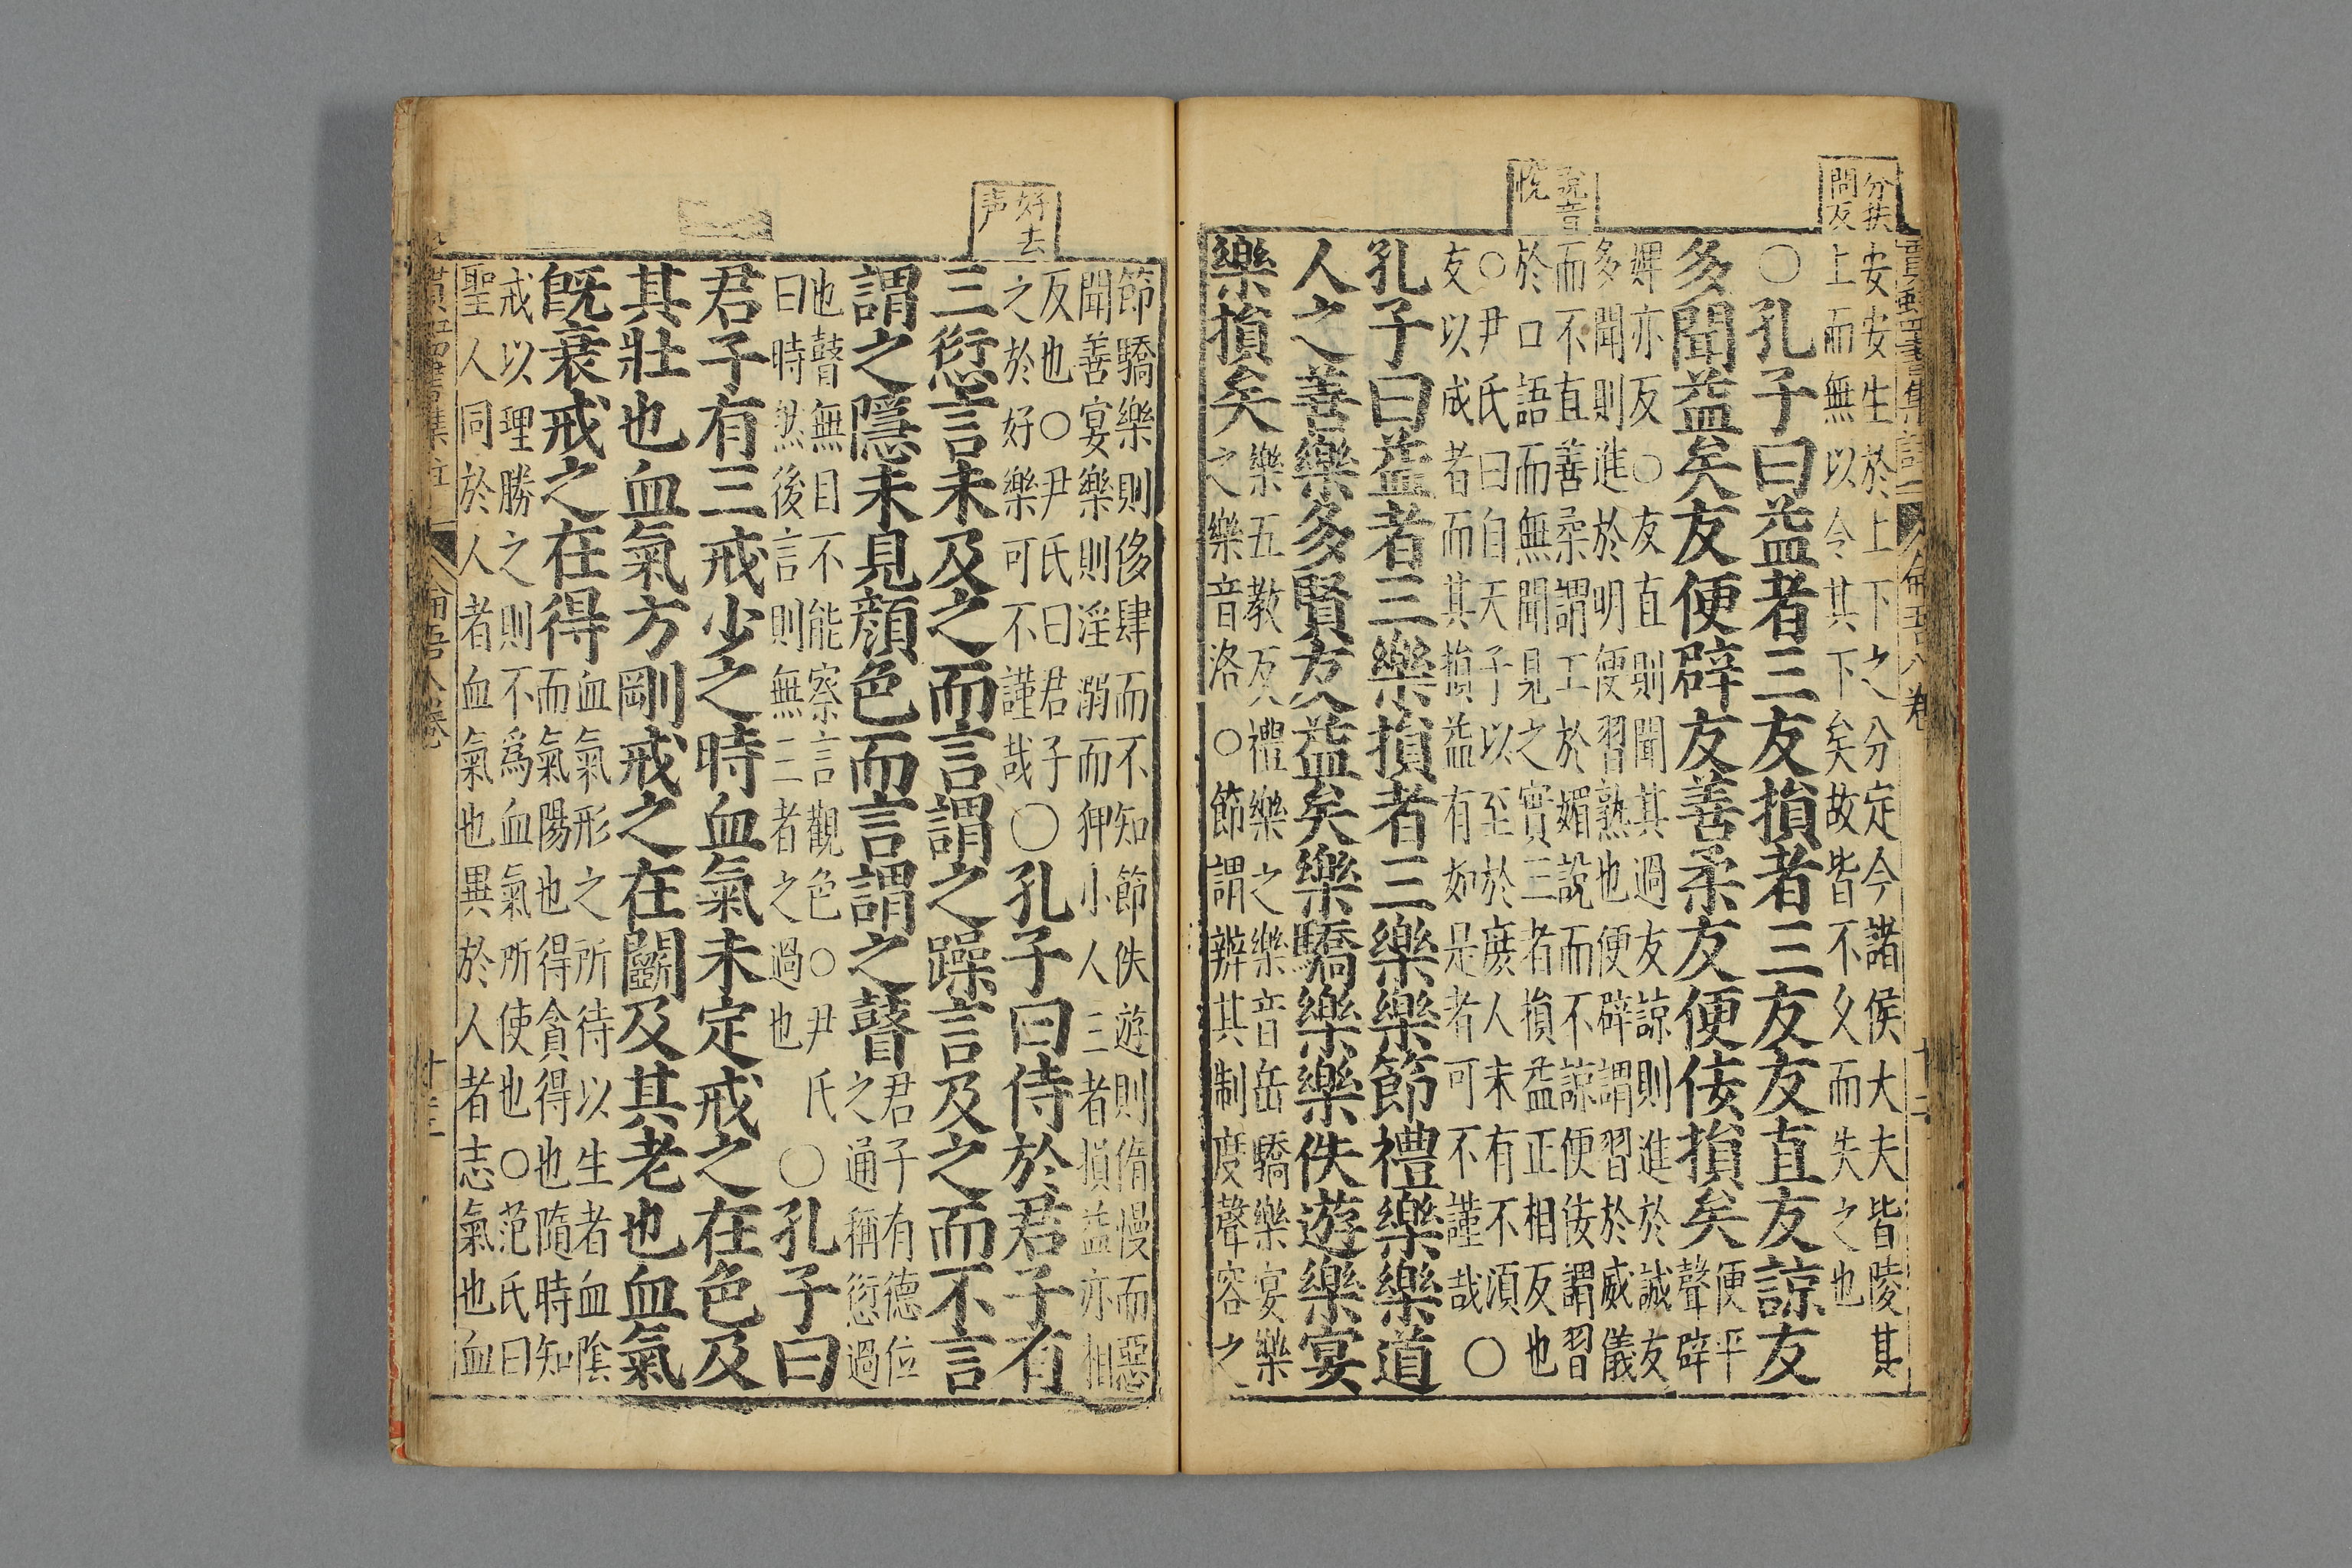 分扶
問反
安安生於上下之分定今諸侯大夫皆陵其
上而無以令其下矣故皆不久而失之也
○孔子曰益者三友損者三友友直友諒友
多聞益矣友便辟友善柔友便佞損矣
便平
聲辟
婢亦反○友直則聞其過友諒則進於誠友
多聞則進於明便習熟也便辟謂習於威儀
說音
悅
而不直善柔謂工於媚說而不諒便佞謂習
於口語而無聞見之實三者損益正相反也
○尹氏曰自天子以至於庶人未有不須
友以成者而其損益有如是者可不謹哉
○
孔子曰益者三樂損者三樂樂節禮樂樂道
人之善樂多賢友益矣樂驕樂樂佚遊樂宴
樂損矣
樂五教反禮樂之樂音岳驕樂宴樂
之樂音洛○節謂辨其制度聲容之
節驕樂則侈肆而不知節佚遊則惰慢而惡
聞善宴樂則淫溺而狎小人三者損益亦相
好去
声
反也○尹氏曰君子
之於好樂可不謹哉
○孔子曰侍於君子有
三愆言未及之而言謂之躁言及之而不言
謂之隱未見顏色而言謂之瞽
君子有德位
之通稱愆過
也瞽無目不能察言觀色○尹氏
曰時然後言則無三者之過也
○孔子曰
君子有三戒少之時血氣未定戒之在色及
其壯也血氣方剛戒之在鬭及其老也血氣
既衰戒之在得
血氣形之所待以生者血陰
而氣陽也得貪得也隨時知
戒以理勝之則不為血氣所使也○范氏曰
聖人同於人者血氣也異於人者志氣也血
論語八卷
十三